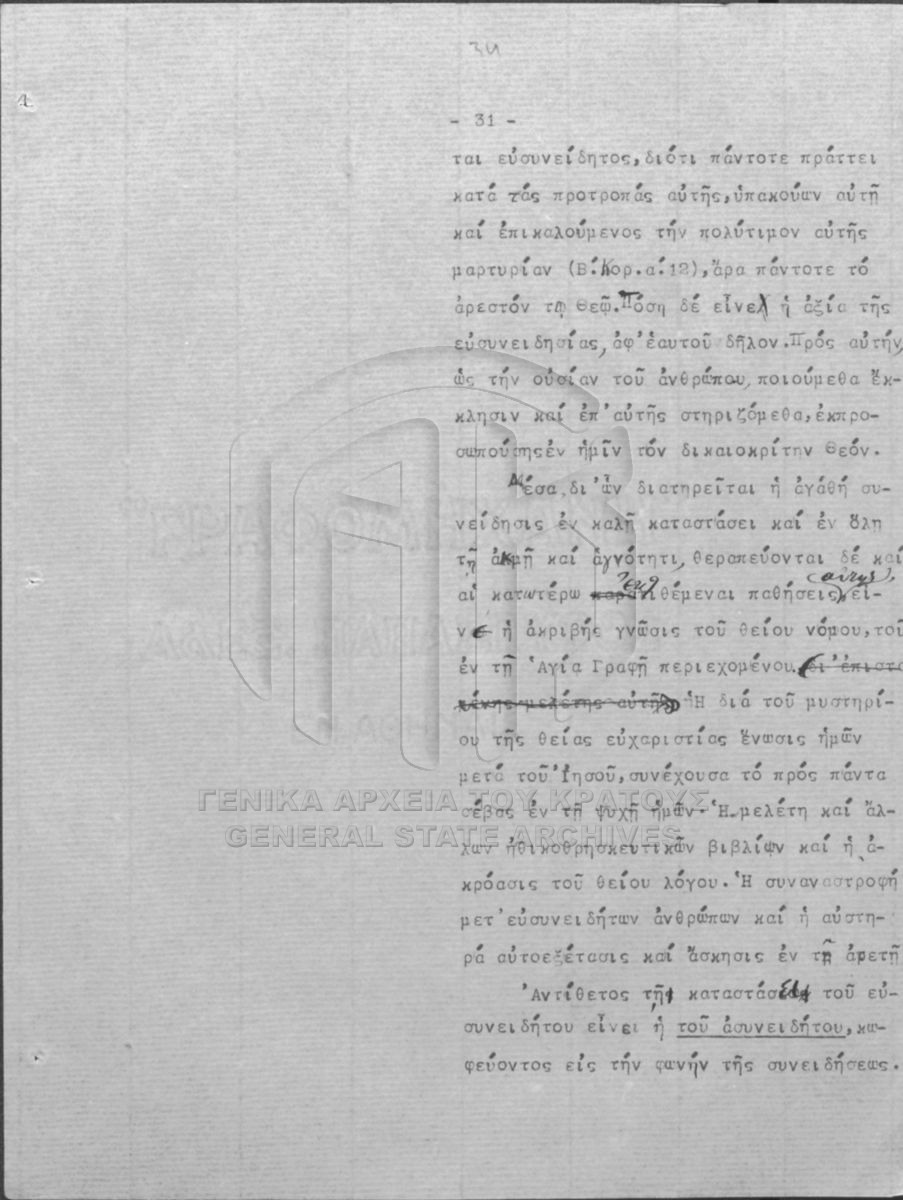 34
- 31 -
ται εὐσυνείδητος, διότι πάντοτε πράττει
κατά τάς προτροπάς αὐτῆς, ὑπακούων αὐτῇ
καί ἐπικαλούμενος τήν πολύτιμον αὐτῆς
μαρτυρίαν (Β. Κορ. α. 12), ἄρα πάντοτε τό
ἀρεστόν τῳ Θεῷ. Πόση δέ εἶνε ἡ ἀξία τῆς
εὐσυνειδησίας, ἀφ' ἑαυτοῦ δῆλον. Πρός αὐτήν,
ὡς τήν οὐσίαν τοῦ ἀνθρώπου, ποιούμεθα ἔκ-
κλησιν καί ἐπ' αὐτῆς στηριζόμεθα, ἐκπρο-
σωπούσης ἐν ἡμῖν τόν δικαιοκρίτην Θεόν.
Μέσα, δι' ὧν διατηρεῖται ἡ ἀγάθή συ-
νείδησις ἐν καλῇ καταστάσει καί ἐν ὅλη
τῇ ἀκμῇ καί ἁγνότητι, θεραπεύονται δέ καί
αἱ κατωτέρω ἐκτιθέμεναι παθήσεις αὐτῆς, εἶ-
νε ἡ ἀκριβής γνῶσις τοῦ θείου νόμου, τοῦ
ἐν τῇ Ἁγίᾳ Γραφῇ περιεχομένου. δι' ἐπιστα
μένης μελέτης αὐτῆς Ἡ διά τοῦ μυστηρί-
ου τῆς θείας εὐχαριστίας ἕνωσις ἡμῶν
μετά τοῦ Ἰησοῦ, συνέχουσα τό πρός πάντα
ΓΕΝΙΚΑ ΑΡΧΕΙΑ ΤΟΥ ΚΡΑΤΟΥΣ
σέβας ἐν τῇ ψυχῇ ἡμῶν. Ἡ μελέτη καί ἄλ-
GENERAL STATE ARCHIVES
λων ἠθικοθρησκευτικῶν βιβλίων καί ἡ ἀ-
κρόασις τοῦ θείου λόγου. Ἡ συναναστροφή
μετ' εὐσυνειδήτων ἀνθρώπων καί ἡ αὐστη-
ρά αὐτοεξέτασις καί ἄσκησις ἐν τῇ ἀρετῇ
Ἀντίθετος τῆς καταστάσεως τοῦ εὐ-
συνειδήτου εἶνει ἡ τοῦ ἀσυνειδήτου, κω-
φεύοντος εἰς τήν φωνήν τῆς συνειδήσεως.